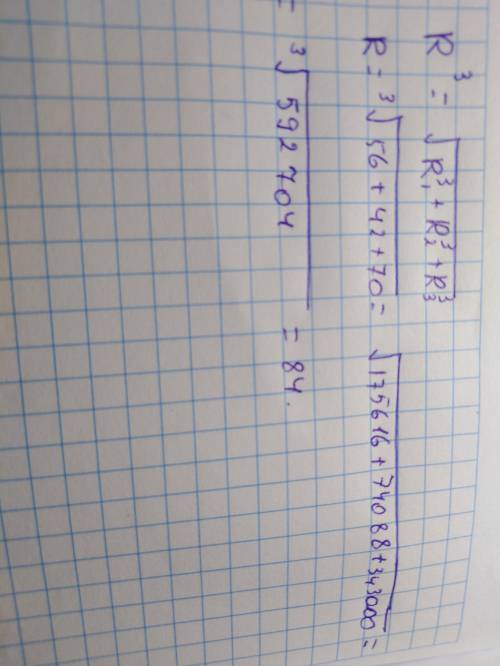 R³ = √R₁³ + R₂³ + R₃³
R = ³√56 + 42 + 70 = √175616 + 74088 + 343000 =
= ³√592704 = 84.